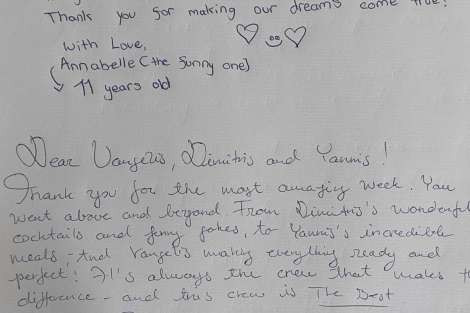 Thank you for making our dreams come true!
With Love,
Annabelle (the Sunny one)
11 years old
Dear Vangelis, Dimitris and Yannis!
Thank you for the most amazing week. You
went above and beyond. From Dimitris's wonderful
cocktails and funny jokes, to Yannis's incredible
meals - And Vangelis making everything ready and
perfect! It's always the crew that makes th
difference - and this crew is The Best